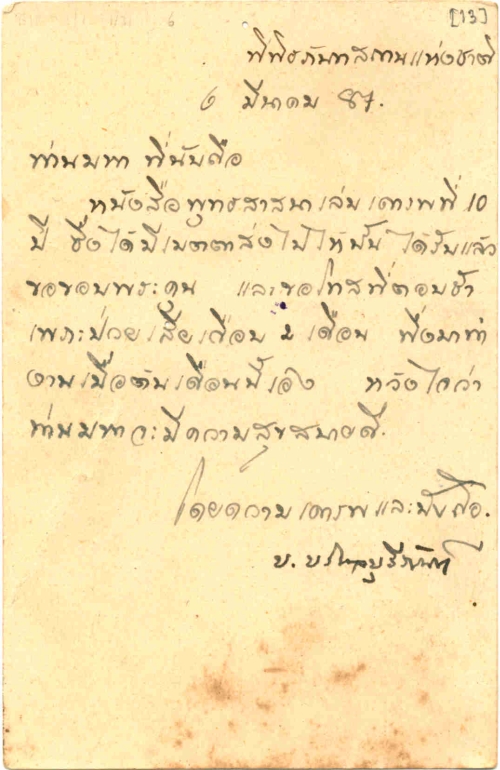 [13]
พิพิธภัณฑสถานแห่งชาติ
๖ มีนาคม 87.
ท่านมหา ที่นับถือ
หนังสือพุทธสาสนาเล่ม เคารพที่ 10
ปี ซึ่งได้มีเมตตาส่งไปให้นั้น ได้รับแล้ว
ขอขอบพระคุณ และขอโทสที่ตอบช้า
เพราะป่วยเสียเกือบ 2 เดือน พึ่งมาทำ
งานเมื่อต้นเดือนนี้เอง หวังใจว่า
ท่านมหาจะมีความสุขสบายดี.
โดยความเคารพและนับถือ.
บ. บริบาลบุรีภัณฑ์